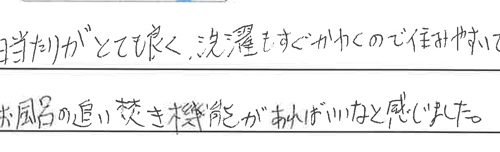 日当たりがとても良く、洗濯もすぐかわくので住みやすいで
お風呂の追い焚き機能があればいいなと感じました。